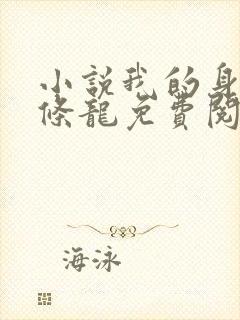 小說我的身
條龍免費閱
海泳